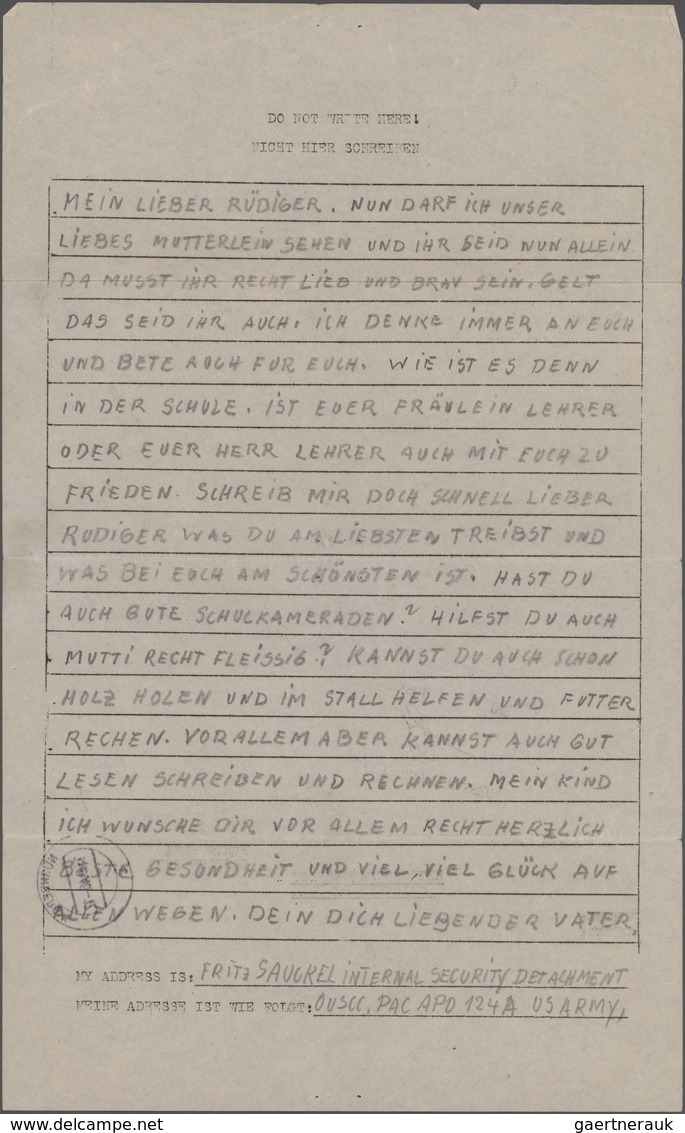 DO NOT WRITE HERE!
NICHT HIER SCHREIBEN
MEIN LIEBER RÜDIGER. NUN DARF ICH UNSER
LIEBES MUTTERLEIN SEHEN UND IHR SEID NUN ALLEIN.
DA MUSST IHR RECHT LIEB UND BRAV SEIN. GELT
DAS SEID IHR AUCH. ICH DENKE IMMER AN EUCH
UND BETE AUCH FUR EUCH. WIE IST ES DENN
IN DER SCHULE. IST EUER FRÄULEIN LEHRER
ODER EUER HERR LEHRER AUCH MIT EUCH ZU
FRIEDEN. SCHREIB MIR DOCH SCHNELL LIEBER
RUDIGER WAS DU AM LIEBSTEN TREIBST UND
WAS BEI EUCH AM SCHÖNSTEN IST. HAST DU
AUCH GUTE SCHULKAMERADEN? HILFST DU AUCH
MUTTI RECHT FLEISSIG? KANNST DU AUCH SCHON
HOLZ HOLEN UND IM STALL HELFEN UND FUTTER
RECHEN. VOR ALLEM ABER KANNST AUCH GUT
LESEN SCHREIBEN UND RECHNEN. MEIN KIND
ICH WUNSCHE DIR VOR ALLEM RECHT HERZLICH
BESTE GESONDHEIT UND VIEL, VIEL GLÜCK AUF
ALLEN WEGEN. DEIN DICH LIEBENDER VATER.
MY ADDRESS IS: FRITZ SAUCKEL INTERNAL SECURITY DETACHMENT
MEINE ADRESSE IST WIE FOLGT: OUSCC, PAC APO 124A US ARMY,
www.delcampe.net
gaertnerauk